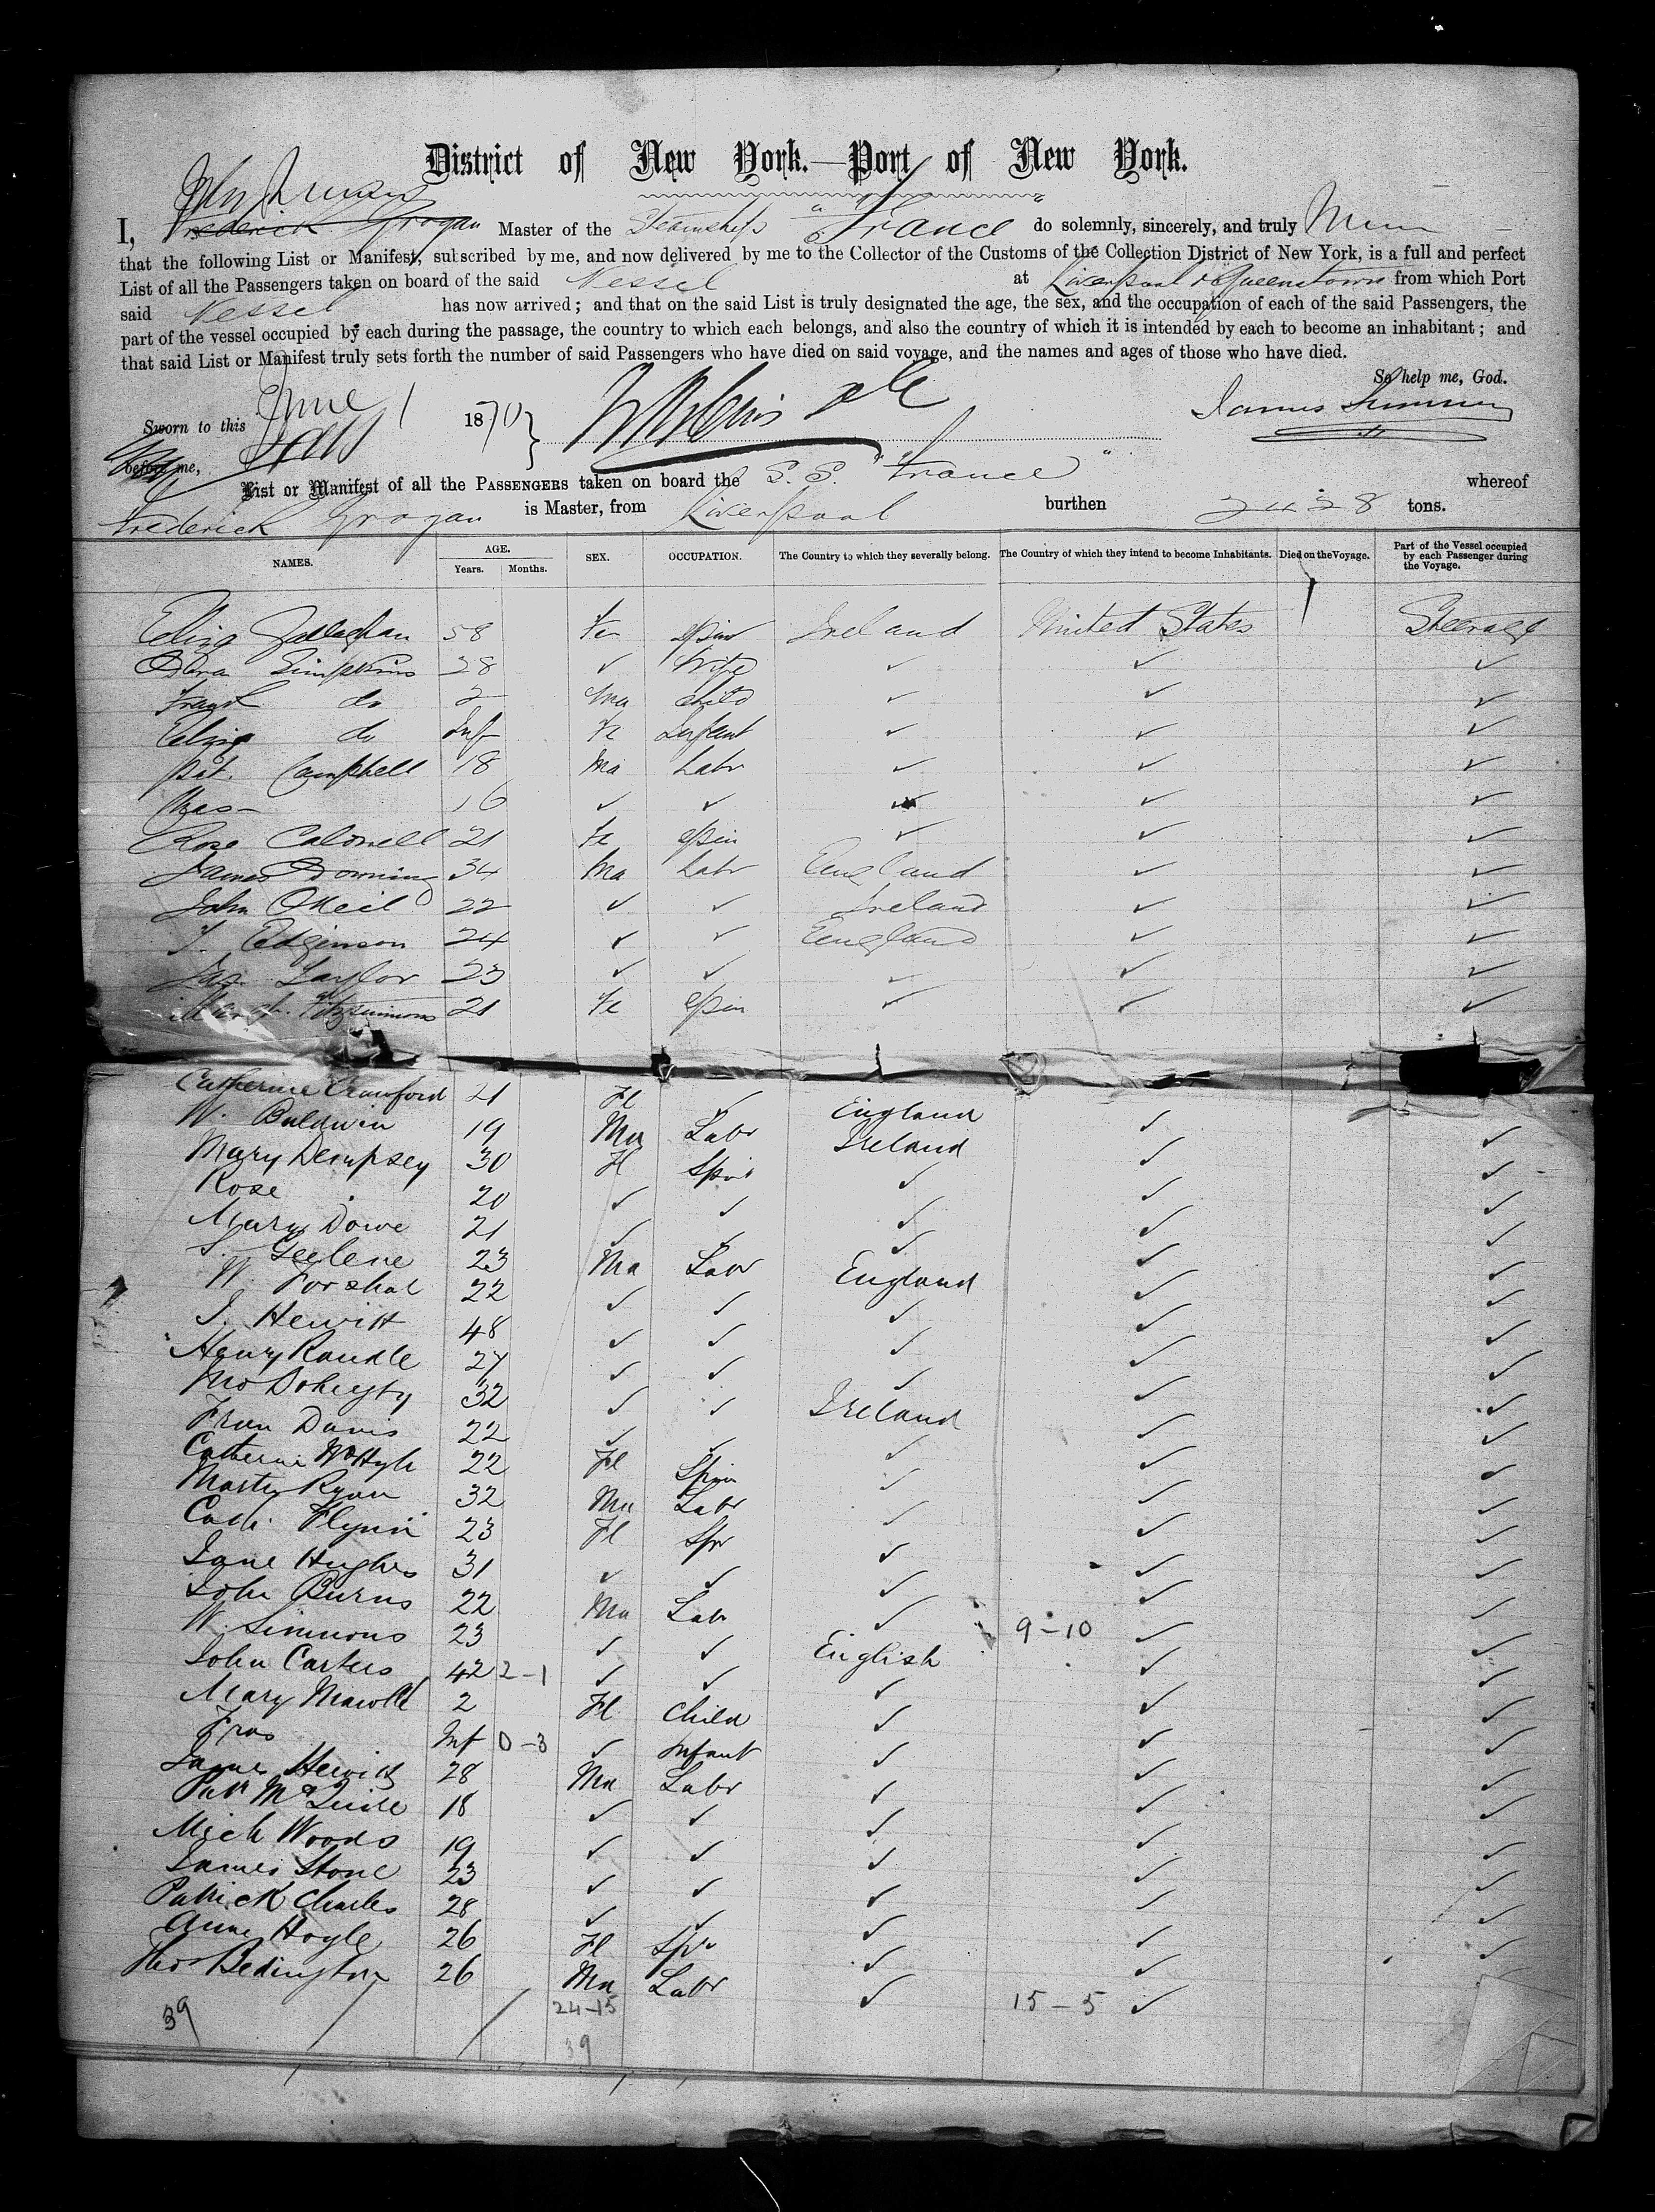 District of New York.—Port of New York.
I, Frederick Grogan Master of the Steamship "France" do solemnly, sincerely, and truly
that the following List or Manifest, subscribed by me, and now delivered by me to the Collector of the Customs of the Collection District of New York, is a full and perfect
List of all the Passengers taken on board of the said Vessel at Liverpool & Queenstown from which Port
said Vessel has now arrived; and that on the said List is truly designated the age, the sex, and the occupation of each of the said Passengers, the
part of the vessel occupied by each during the passage, the country to which each belongs, and also the country of which it is intended by each to become an inhabitant; and
that said List or Manifest truly sets forth the number of said Passengers who have died on said voyage, and the names and ages of those who have died.
So help me, God.
Sworn to this June 1 1870 }
before me,
List or Manifest of all the PASSENGERS taken on board the S.S. "France" whereof
Frederick Grogan is Master, from Liverpool burthen 2428 tons.
NAMES. AGE. Years. Months. SEX. OCCUPATION. The Country to which they severally belong. The Country of which they intend to become Inhabitants. Died on the Voyage. Part of the Vessel occupied by each Passenger during the Voyage.
Eliza Gallaghan 58 Fe Spin Ireland United States Steerage
Simpkins 28 ✓ Wife ✓ ✓ ✓
Frank do 2 Ma Child ✓ ✓ ✓
do Inf Fe Infant ✓ ✓ ✓
Pat. Campbell 18 Ma Labr ✓ ✓ ✓
16 ✓ ✓ ✓ ✓ ✓
Rose Caldwell 21 Fe Spin ✓ ✓ ✓
James Downing 34 Ma Labr England ✓ ✓
John ONeil 22 ✓ ✓ Ireland ✓ ✓
T. Edginson 24 ✓ ✓ England ✓ ✓
Jas. Taylor 23 ✓ ✓ ✓ ✓ ✓
Fitzsimmons 21 Fe Spin ✓ ✓ ✓
Catherine Crawford 21 Fl ✓ England ✓ ✓
W. Baldwin 19 Ma Labr Ireland ✓ ✓
Mary Dempsey 30 Fl Spin ✓ ✓ ✓
Rose 20 ✓ ✓ ✓ ✓ ✓
Mary Dowe 21 ✓ ✓ ✓ ✓ ✓
Geelene 23 Ma Labr England ✓ ✓
W. Forshal 22 ✓ ✓ ✓ ✓ ✓
J. Hewitt 48 ✓ ✓ ✓ ✓ ✓
Henry Randle 27 ✓ ✓ ✓ ✓ ✓
Doherty 32 ✓ ✓ Ireland ✓ ✓
Fran Davis 22 ✓ ✓ ✓ ✓ ✓
Catherine McHugh 22 Fl Spin ✓ ✓ ✓
Marty Ryan 32 Ma Labr ✓ ✓ ✓
Cath. Flynn 23 Fl Spr ✓ ✓ ✓
Jane Hughes 31 ✓ ✓ ✓ ✓ ✓
John Burns 22 Ma Labr ✓ 9-10 ✓ ✓
W. Simmons 23 ✓ ✓ English ✓ ✓
John Carters 42 2-1 ✓ ✓ ✓ ✓ ✓
Mary 2 Fl Child ✓ ✓ ✓
Fras Inf 0-3 ✓ Infant ✓ ✓ ✓
James Hewitt 28 Ma Labr ✓ ✓ ✓
Patk 18 ✓ ✓ ✓ ✓ ✓
Mich Woods 19 ✓ ✓ ✓ ✓ ✓
James Stone 23 ✓ ✓ ✓ ✓ ✓
Patrick Charles 28 ✓ ✓ ✓ ✓ ✓
Anne Hoyle 26 Fl Spr ✓ ✓ ✓
Thos Bedington 26 Ma Labr ✓ 15-5 ✓
39 24-15
39